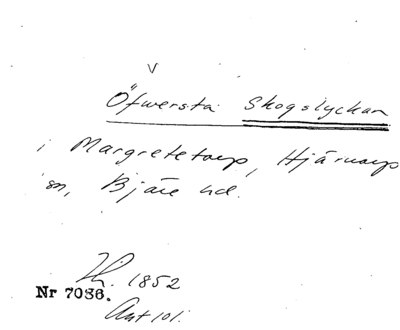 V
Öfwersta Skogslyckan
i Margretetorp, Hjärnarp
sn, Bjäre hd.
Lh. 1852
Nr 7036.
Akt 101.